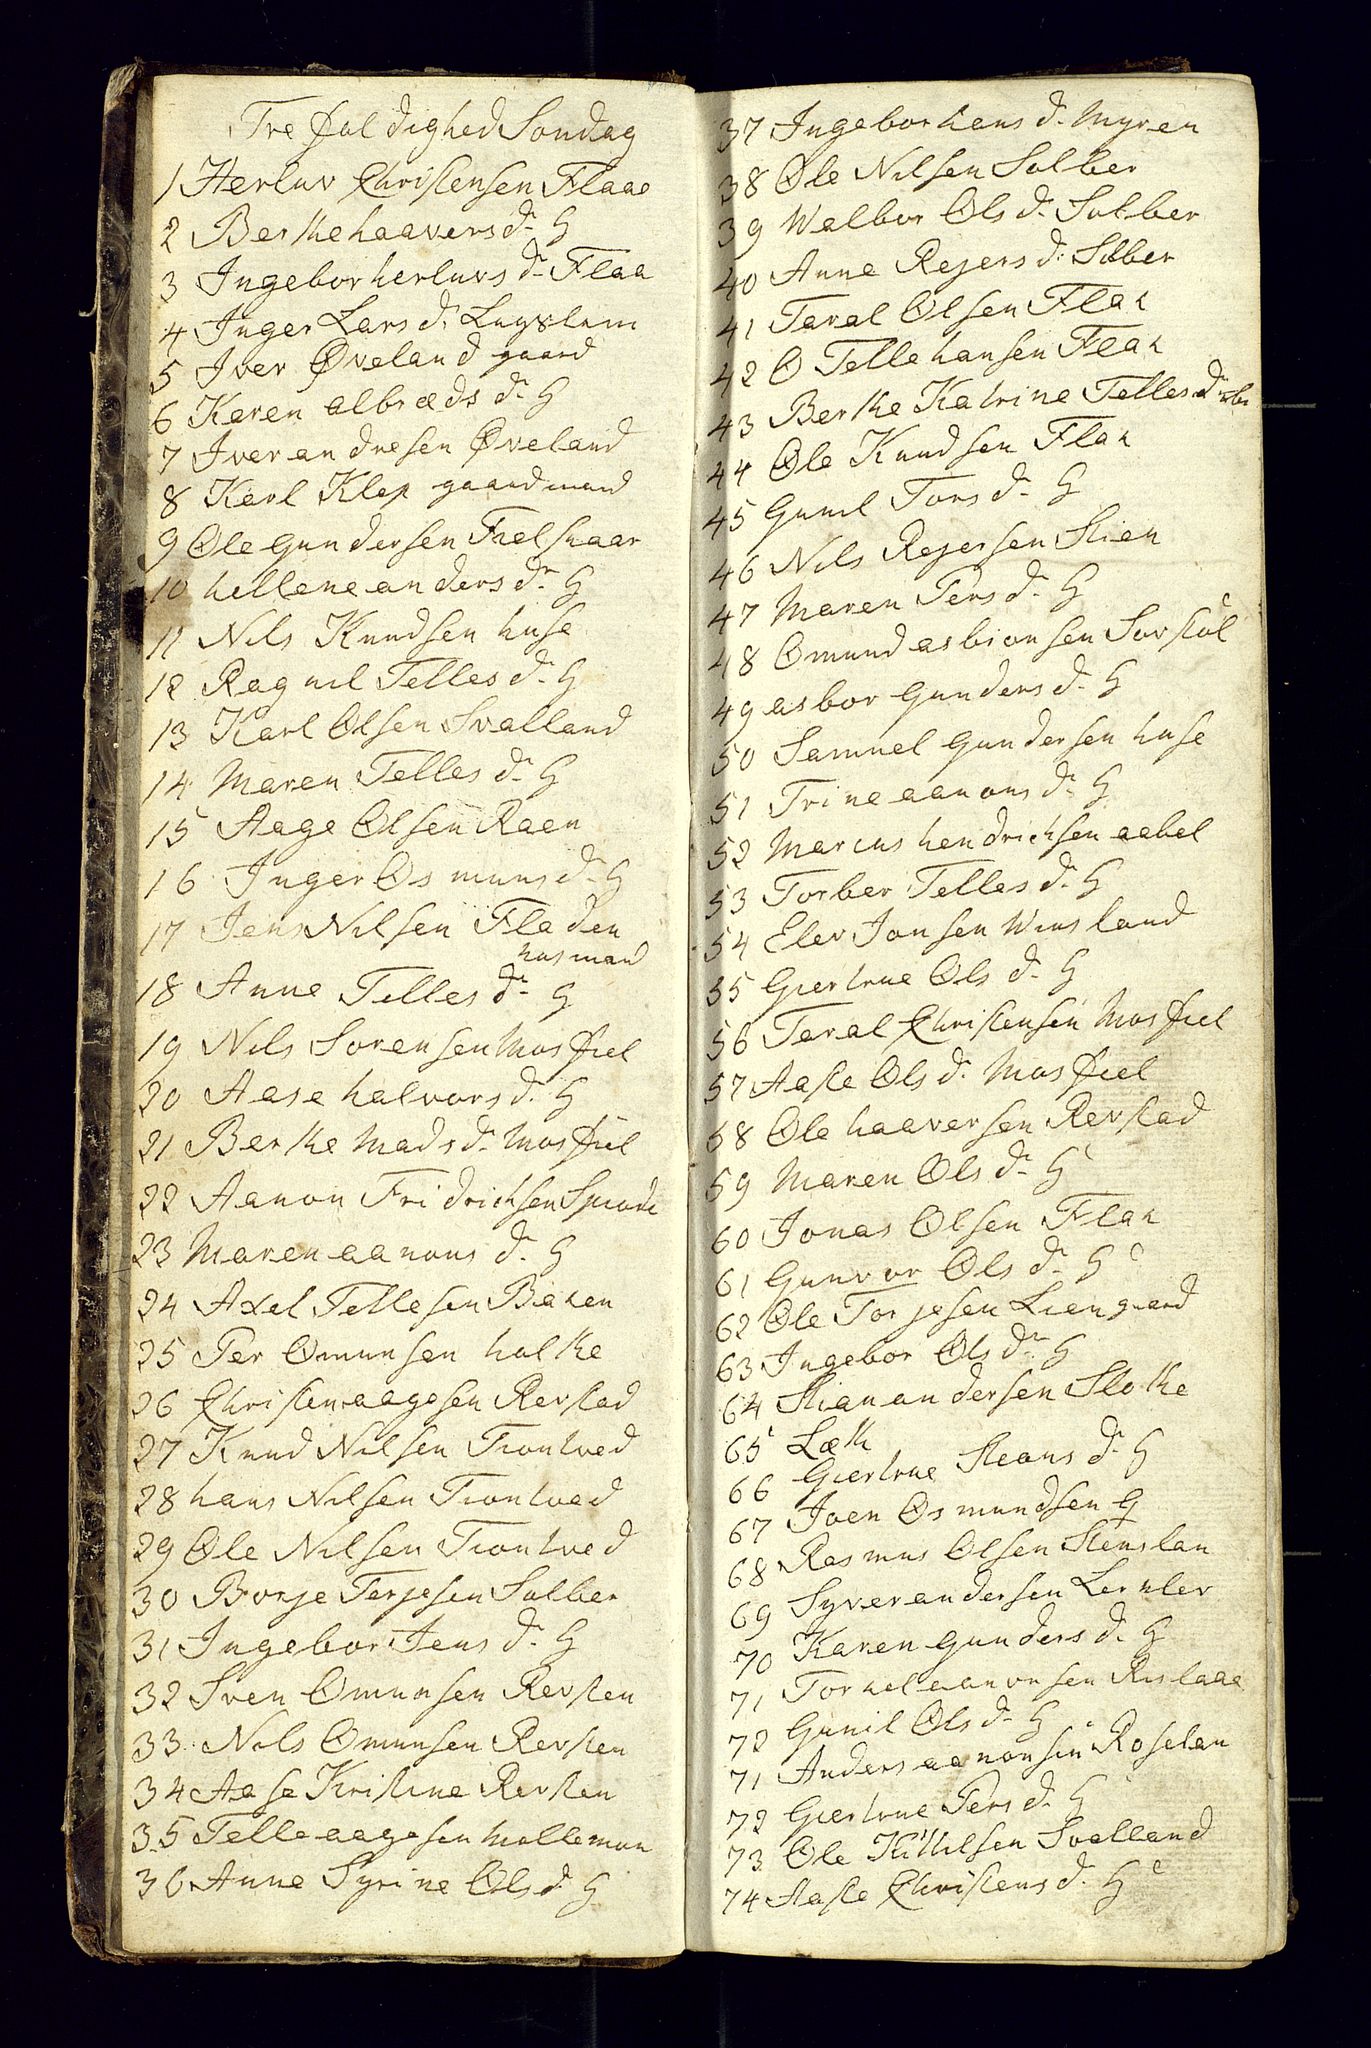 Tre fol dighed Sondag
1 Herluv Christensen Flaae
2 Berthe haavers d. H
3 Ingebor herluvs d. Flaa
4 Inger Lars d.
5 Iver Øveland gaard
6 Karen albreds d. H
7 Iver andresen Øveland
8 Karl Klep gaardmand
9 Ole gundersen Fielskaar
10 hellene anders d. H
11 Nils Knudsen huse
12 Ragnil Telles d. H
13 Karl Olsen Svalland
14 Maren Telles d. H
15 Aage Olsen Raen
16 Inger Osmuns d. H
17 Jens Nilsen Fladen
husmand
18 Anne Telles d. H
19 Nils Sorensen Mosfiel
20 Aase halvors d. H
21 Berthe Mads d. Mosfiel
22 Aanon Fridrichsen
23 Maren aanons d. H
24 Axel Tellesen Baken
25 Per Omunsen holthe
26 Christen aagesen Revstad
27 Knud Nilsen Tronhved
28 hans Nilsen Tronhved
29 Ole Nilsen Tronhved
30 Borje Terjesen Solber
31 Ingebor Jens d. H
32 Sven Omunsen Revsten
33 Nils Omunsen Revsten
34 Aase Kristine Revsten
35 Telle aagesen Mollemon
36 Anne Syrine Ols d. H
37 Ingebor hans d. Myren
38 Ole Nilsen Solber
39 Walbor Ols d. Solber
40 Anne Rejers d. Solber
41 Taral Olsen Flak
42 O Telle hansen Flak
43 Berthe Katrine Telles d.
44 Ole Knudsen Flak
45 Gunil Tors d. H
46 Nils Rejersen Stien
47 Maren Pers d. H
48 Omund asbionsen Sorstøl
49 asbor gunders d. H
50 Samuel gundersen huse
51 Trine aanons d. H
52 Marcus hendrichsen aabel
53 Torber Telles d. H
54 Elev Jonsen Winsland
55 Giertrue Ols d. H
56 Taral Christensen Mosfiel
57 Aaste Ols d. Mosfiel
58 Ole haaversen Revstad
59 Maren Ols d. H
60 Jonas Olsen Flak
61 Gunvor Ols d. H
62 Ole Torjesen Lien gaard
63 Ingebor Ols d. H
64 Stian andersen Slothe
65 Læth
66 Giertrue Steans d. H
67 Joen Osmundsen G
68 Rasmus Olsen Stenslan
69 Syver andersen
70 Karen gunders d. H
71 Torkel aanonsen
72 Gunil Ols d. H
71 Anders aanonsen Roselan
72 Giertrue Pers d. H
73 Ole Kittilsen Svalland
74 Aaste Christens d. H